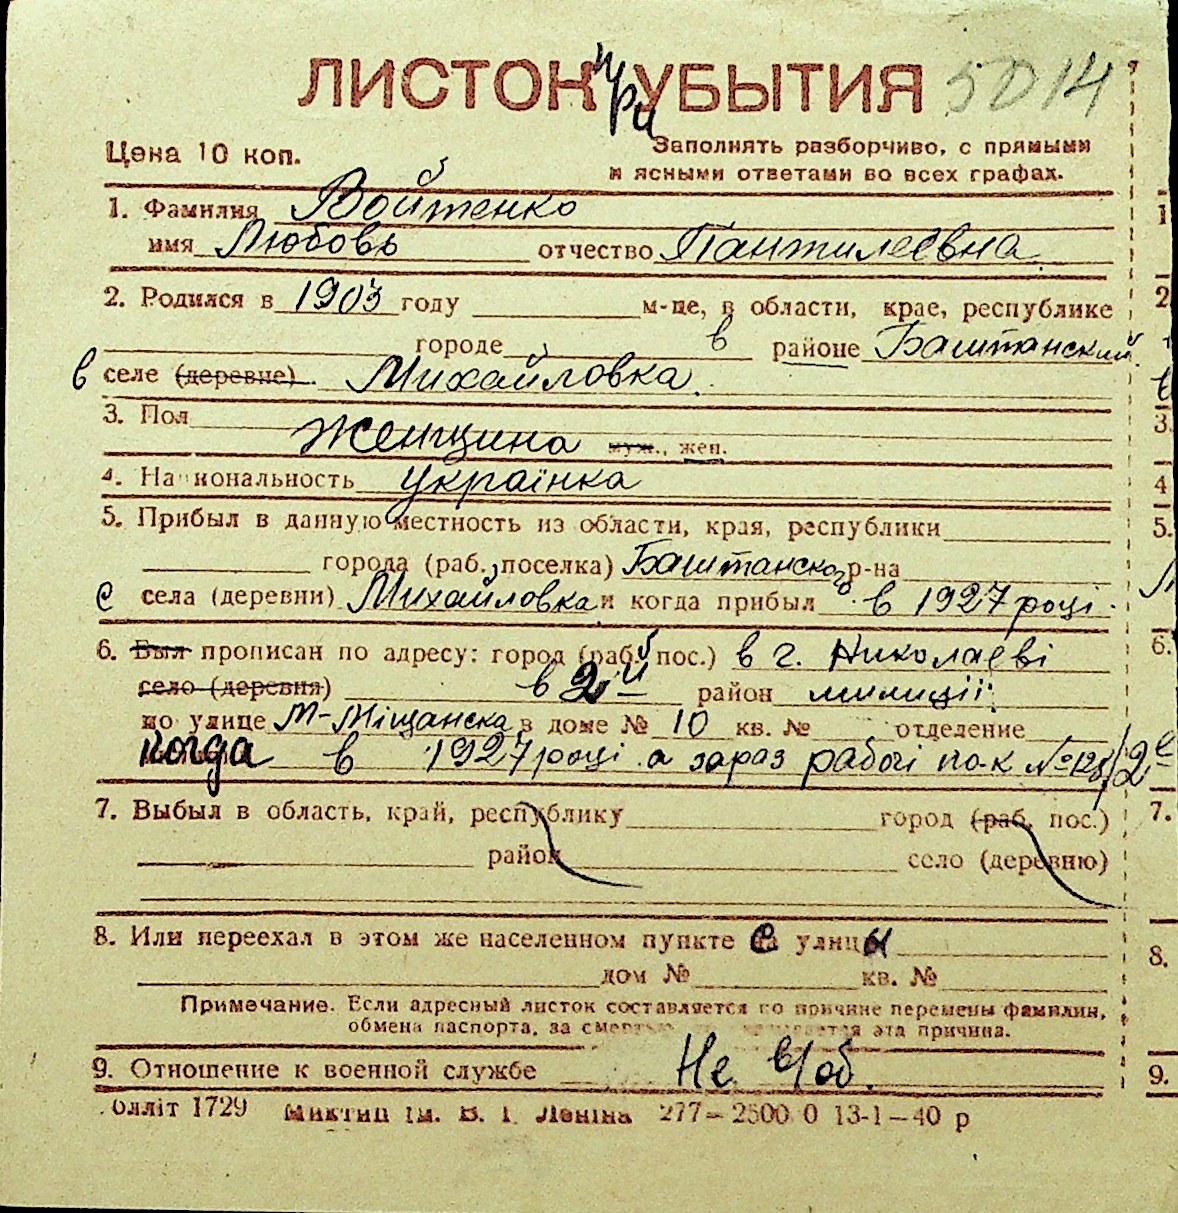 ЛИСТОК УБЫТИЯ 5014
при
Цена 10 коп.
Заполнять разборчиво, с прямыми
и ясными ответами во всех графах.
1. Фамилия Войтенко
имя Любовь отчество Пантилеевна
2. Родился в 1903 году м-це, в области, крае, республике
городе в районе Баштанский
в селе (деревне) Михайловка
3. Пол
Женщина муж., жен.
4. Национальность українка
5. Прибыл в данную местность из области, края, республики
города (раб. поселка) Баштанского р-на
с села (деревни) Михайловка и когда прибыл в 1927 році.
6. Был прописан по адресу: город (раб. пос.) в г. Николаеві
село (деревня) в 2й район милиції
по улице М-Міщанска в доме № 10 кв. № отделение
когда в 1927 році а зараз рабочі
7. Выбыл в область, край, республику город (раб. пос.)
район село (деревню)
8. Или переехал в этом же населенном пункте с улицы
дом № кв. №
Примечание. Если адресный листок составляется по причине перемены фамилии,
обмена паспорта, за смертью эта причина.
9. Отношение к военной службе Не в/об.
1729 им. В. І. Леніна 277—2500 0 13-1—40 р
1
2
3.
4
5.
6.
7.
8.
9.